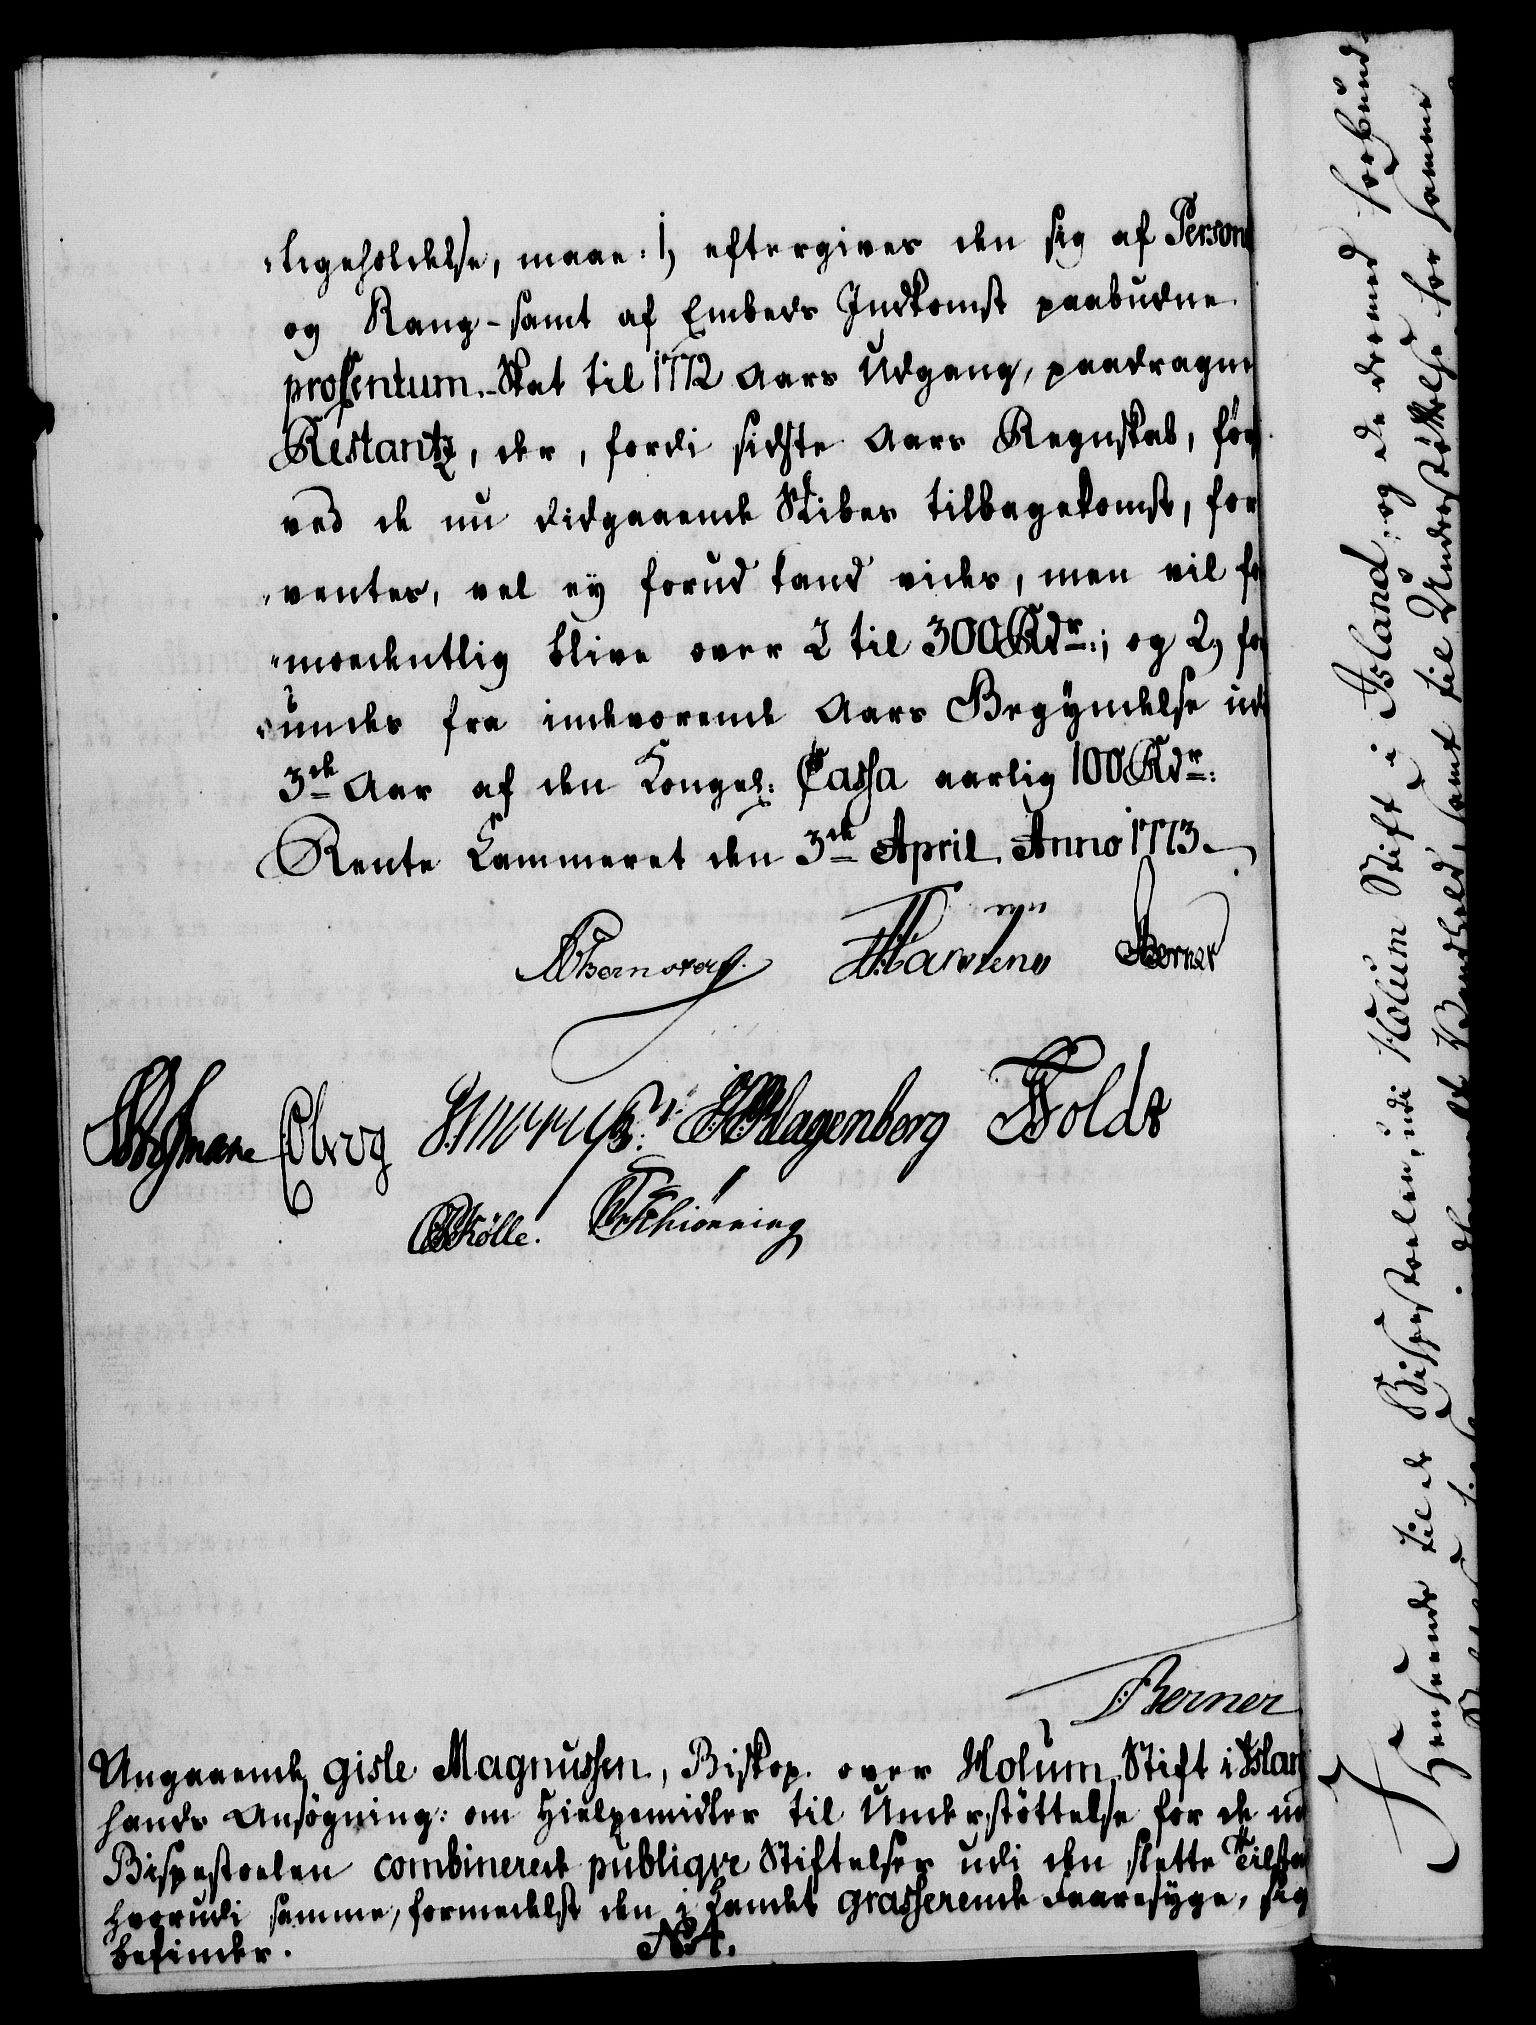 -ligeholdelse, maae: 1, eftergives den sig af Person
og Rang- samt af Embeds Indkomst paabudne
prosentum-Skat til 1772 Aars Udgang, paadragne
Restantz, der, fordi sidste Aars Regnskab, før
ved de nu didgaaende Skibes tilbagekomst, for
-ventes, vel ey forud kand vides, men vil for
-moedentlig blive over 2 til 300 Rdr:; og 2, for
-undes fra indeværende Aars Begyndelse udi
3de Aar af den Kongel: Cassa aarlig 100 Rdr:
Rente Kammeret den 3de April Anno 1773.
Martens Berner
Eberg Klagenberg Holdt
Kølle. Schiønning
Berner
Angaaende Gisle Magnussen, Biskop over Holum Stift i Islan
hands Ansøgning: om Hielpemidler til Understøttelse for de ved
Bispestoelen combinerede publiqve Stiftelser udi den slette Tilstan
hvorudi samme, formedelst den i Landet grasserende Faaresyge, sig
befinder.
N:4.
I Henseende til at Bispestoelen, udi Holum Stift i Island, og de dermed forbund
til Understøttelse for samme